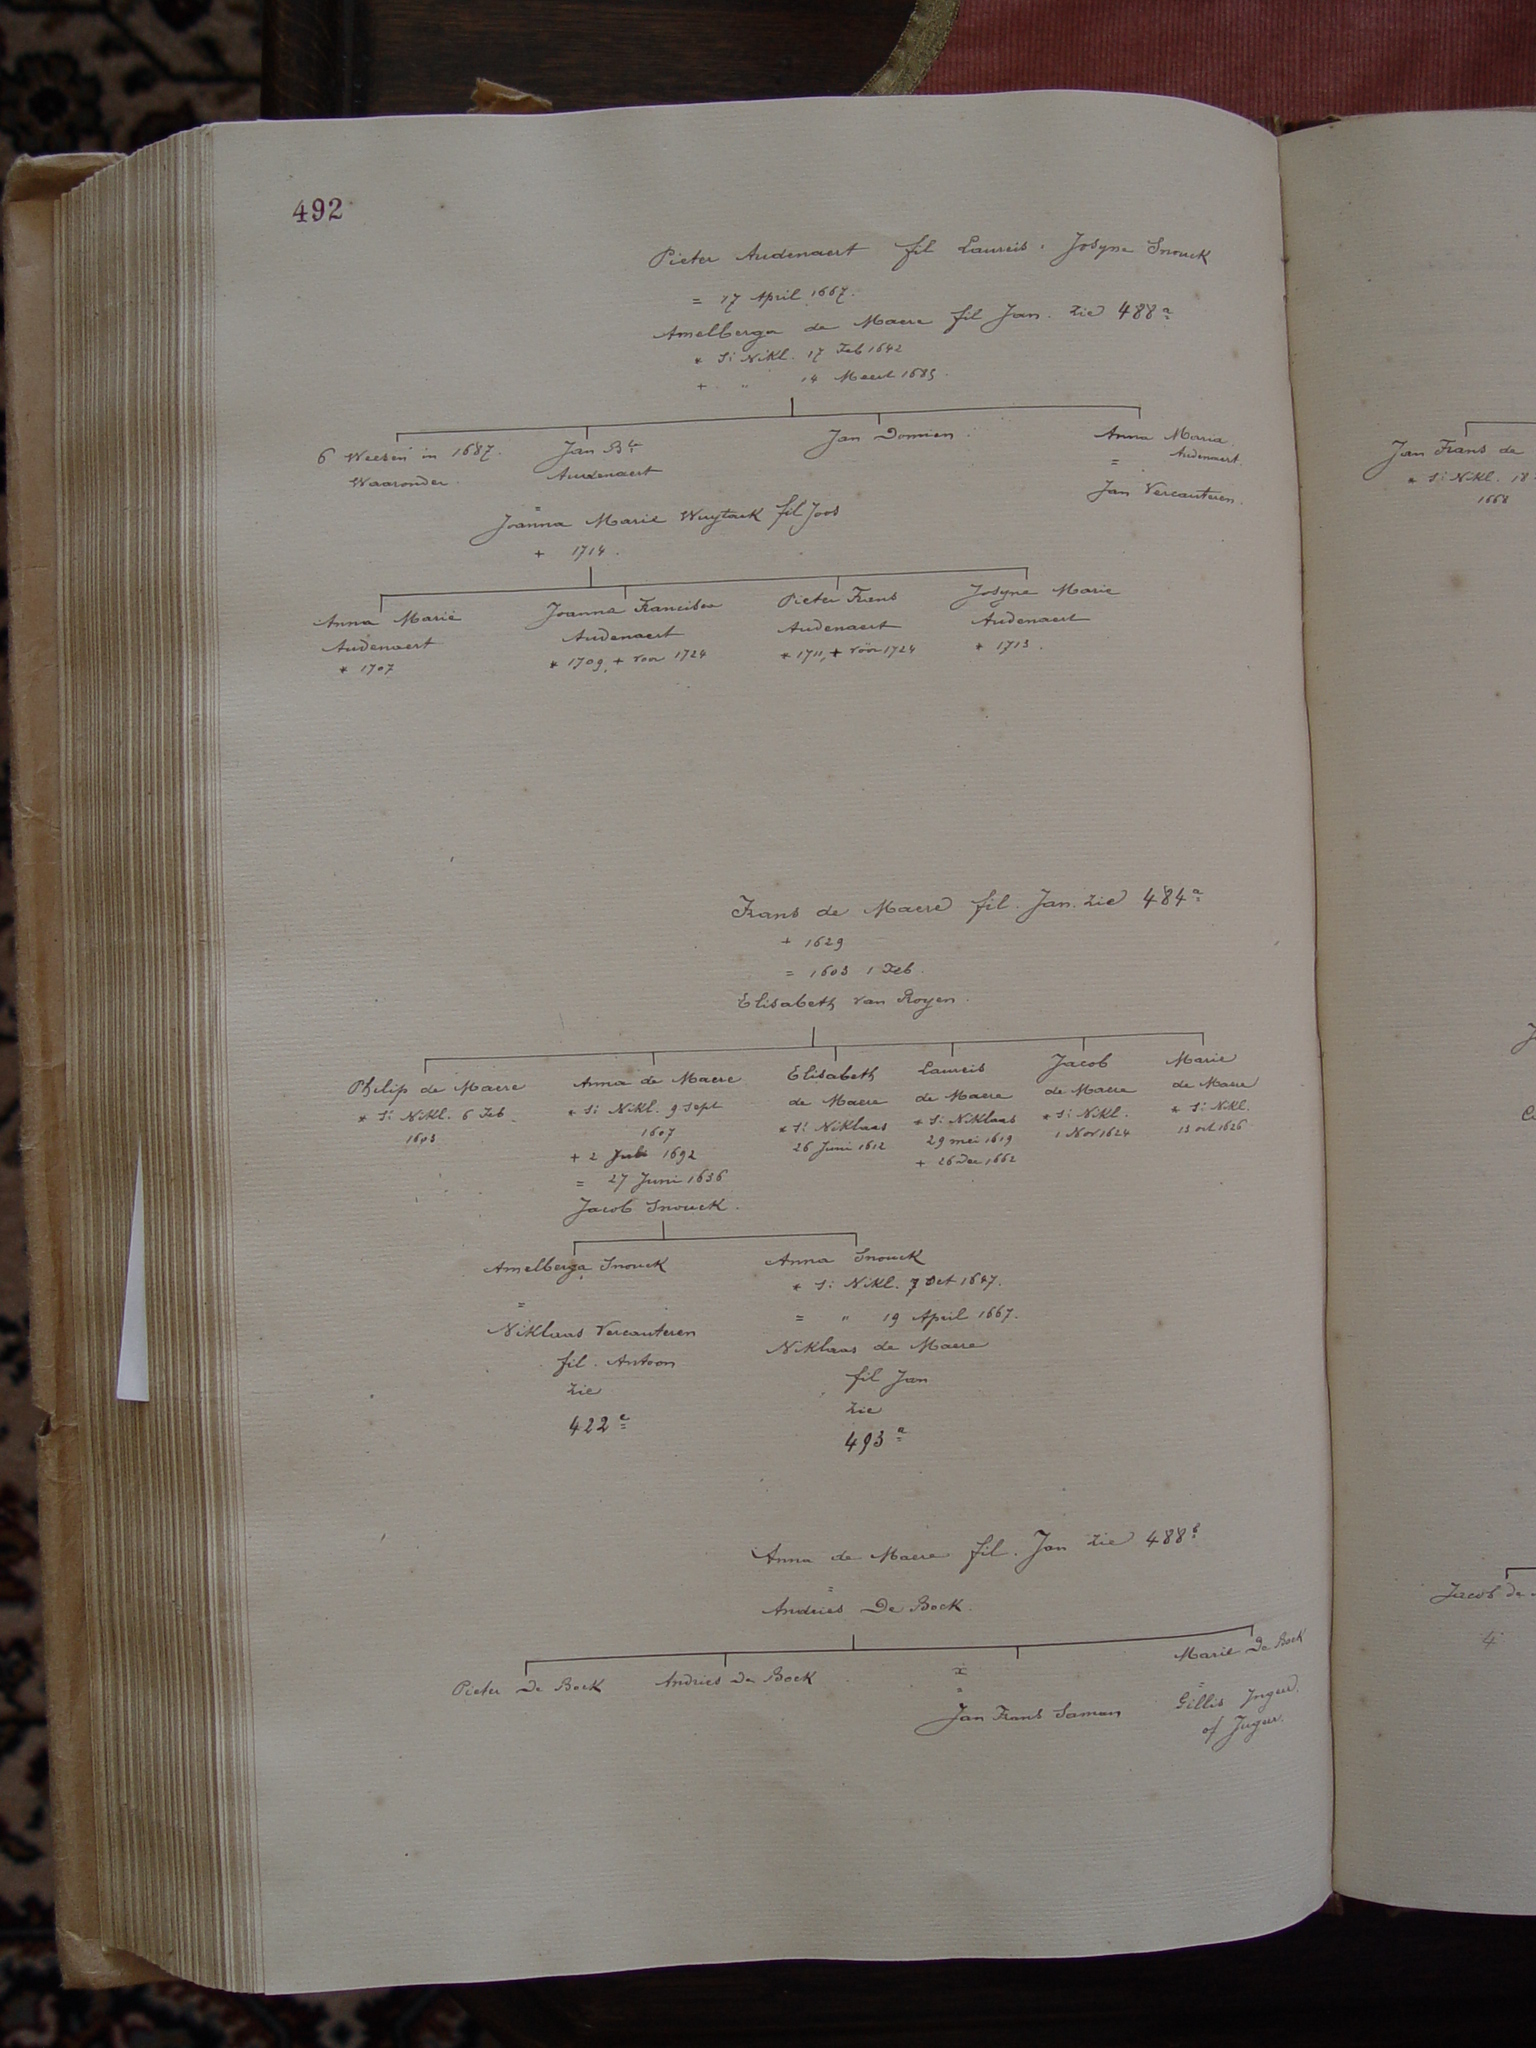 492
Pieter Audenaert fil Laureis. Josyne Snouck
= 17 April 1667.
Amelberga de Maere fil Jan. zie 488ª
* St Nikl. 17 Feb 1642
+ " 14 Meert 1685.
6 Weezen in 1687. Jan Bte Jan Domien. Anna Maria.
Waaronder. Audenaert Audenaert.
= =
Joanna Marie Wuytack fil Joos Jan Vercauteren.
+ 1714.
Anna Marie Joanna Francisca Pieter Frans Josyne Marie
Audenaert Audenaert Audenaert Audenaert
* 1707 * 1709, + voor 1724 * 1711, + vóór 1724 * 1713.
Frans de Maere fil. Jan. zie 484ª
+ 1629
= 1603 1 Feb.
Elisabeth van Royen.
Philip de Maere Anna de Maere Elisabeth Laureis Jacob Marie
* St Nikl. 6 Feb * St Nikl. 9 Sept de Maere de Maere de Maere de Maere
1603 1607 * St Niklaas * St Niklaas * St Nikl. * St Nikl.
+ 2 Juli 1692 26 Juni 1612 29 mei 1619 1 Nov 1624 13 oct 1626
= 27 Juni 1636 + 26 Dec 1662
Jacob Snouck.
Amelberga Snouck Anna Snouck
* St Nikl. 7 Oct 1647.
= = " 19 April 1667.
Niklaas Vercauteren Niklaas de Maere
fil. Antoon fil Jan
zie zie
422c 493ª
Anna de Maere fil. Jan zie 488b
=
Andries De Bock.
Pieter De Bock Andries De Bock x Marie De Bock
= =
Jan Frans Saman Gillis Ingeer.
of Jugeer.
Jan Frans de
* St Nikl. 18
1668
Jacob de
4